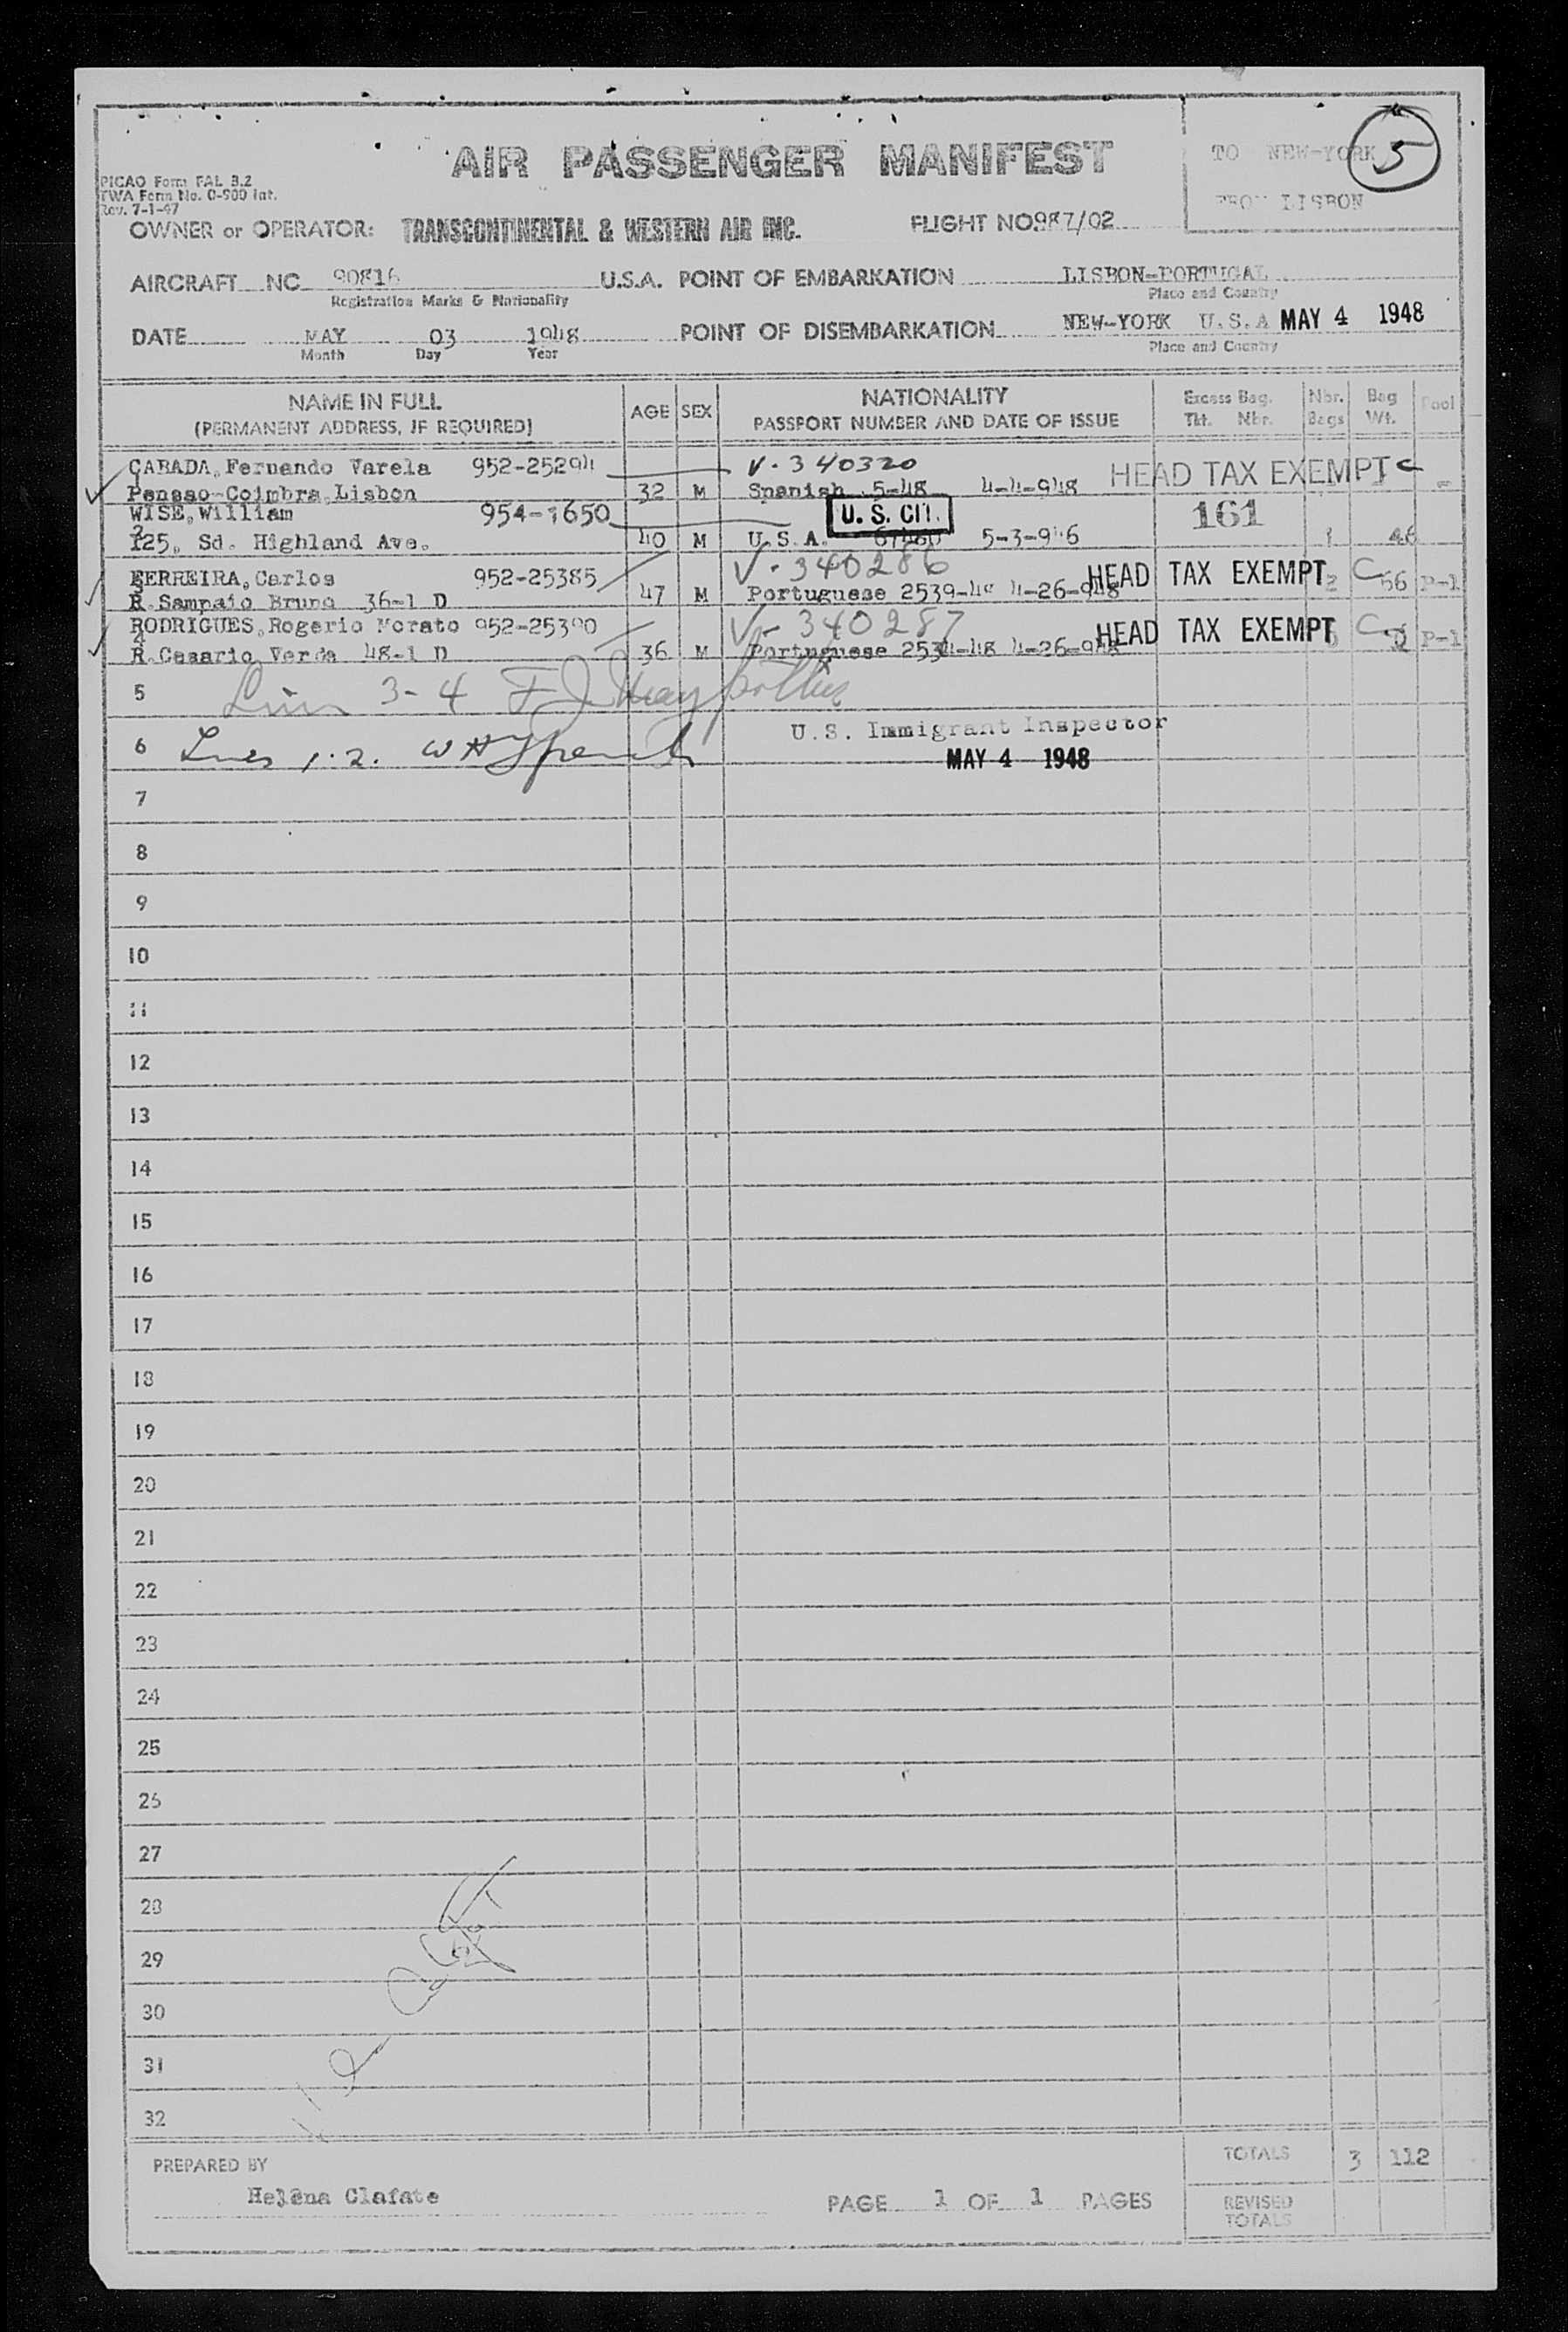 AIR PASSENGER MANIFEST
TO NEW-YORK
5
FROM LISBON
PICAO Form FAL 3.2
TWA Form No. O-900 Int.
Rev. 7-1-47
OWNER or OPERATOR: TRANSCONTINENTAL & WESTERN AIR INC. FLIGHT NO. 987/02
AIRCRAFT NC 90816 U.S.A. POINT OF EMBARKATION LISBON-PORTUGAL
Registration Marks & Nationality Place and Country
DATE MAY 03 1948 POINT OF DISEMBARKATION NEW-YORK U.S.A MAY 4 1948
Month Day Year Place and Country
NAME IN FULL AGE SEX NATIONALITY Excess Bag. Nbr. Bag Pool
(PERMANENT ADDRESS, IF REQUIRED) PASSPORT NUMBER AND DATE OF ISSUE Tkt. Nbr. Bags Wt.
CABADA, Fernando Varela 952-25294 V-340320 HEAD TAX EXEMPT C
1 Pensao-Coimbra, Lisbon 32 M Spanish 5-48 4-4-948 -
WISE, William 954-1650 U. S. CIT. 161
2 125, Sd. Highland Ave. 40 M U.S.A. 5-3-946 1 46
FERREIRA, Carlos 952-25385 V-340286 HEAD TAX EXEMPT C
3 R. Sampaio Bruno 36-1 D 47 M Portuguese 2539-48 4-26-948 2 56 P-1
RODRIGUES, Rogerio Morato 952-25390 V-340287 HEAD TAX EXEMPT C
4 R. Cesario Verde 48-1 D 36 M Portuguese 2534-48 4-26-948 P-1
5 Lines 3-4
6 Lines 1-2. U.S. Immigrant Inspector
MAY 4 1948
7
8
9
10
11
12
13
14
15
16
17
18
19
20
21
22
23
24
25
26
27
28
29
30
31
32
PREPARED BY TOTALS 3 112
Heléna Clafate PAGE 1 OF 1 PAGES REVISED
TOTALS